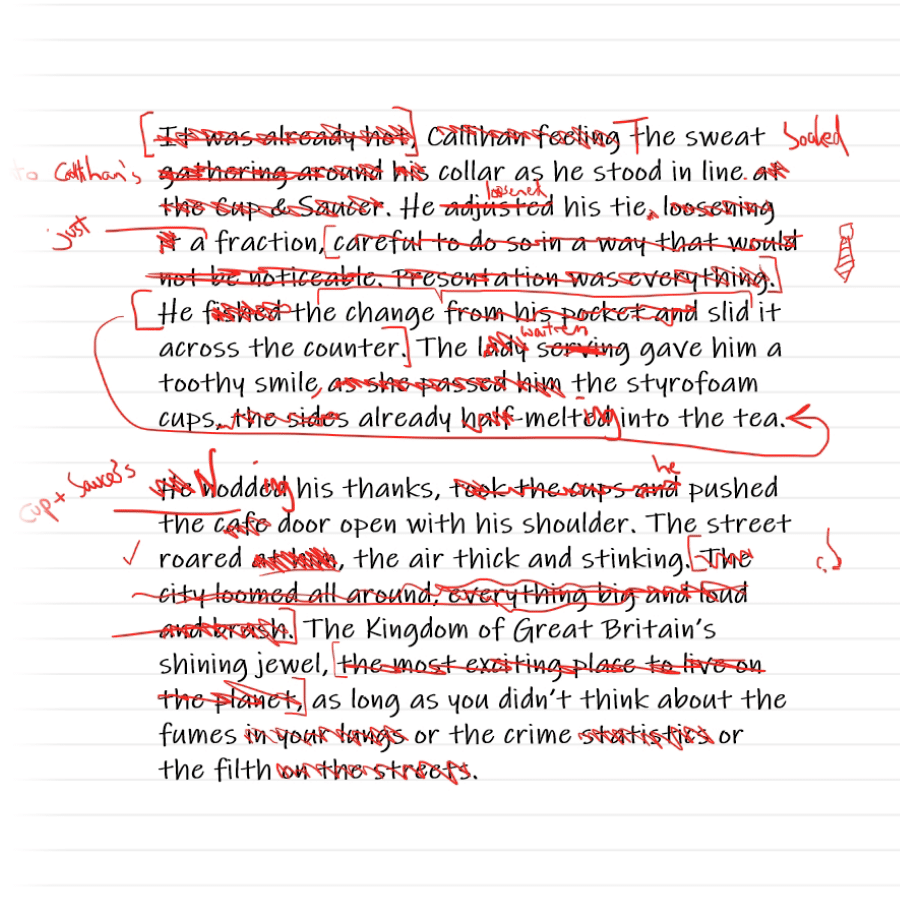 [It was already hot, Callihan feeling The sweat Soaked
to Callihan's gathering around his collar as he stood in line. at
the Cup & Saucer. He adjusted loosened his tie, loosening
just it a fraction, [careful to do so in a way that would
not be noticeable. Presentation was everything.]
[He fished the change from his pocket and slid it
across the counter.] The lady serving waitress gave him a
toothy smile, as she passed him the styrofoam
cups, the sides already half-melting into the tea.
Cup + Saucer's He Nodded ing his thanks, took the cups and he pushed
the cafe door open with his shoulder. The street
roared at him, the air thick and stinking. [The
city loomed all around, everything big and loud
and brash.] The Kingdom of Great Britain's
shining jewel, [the most exciting place to live on
the planet,] as long as you didn't think about the
fumes in your lungs or the crime statistics or
the filth on the streets.